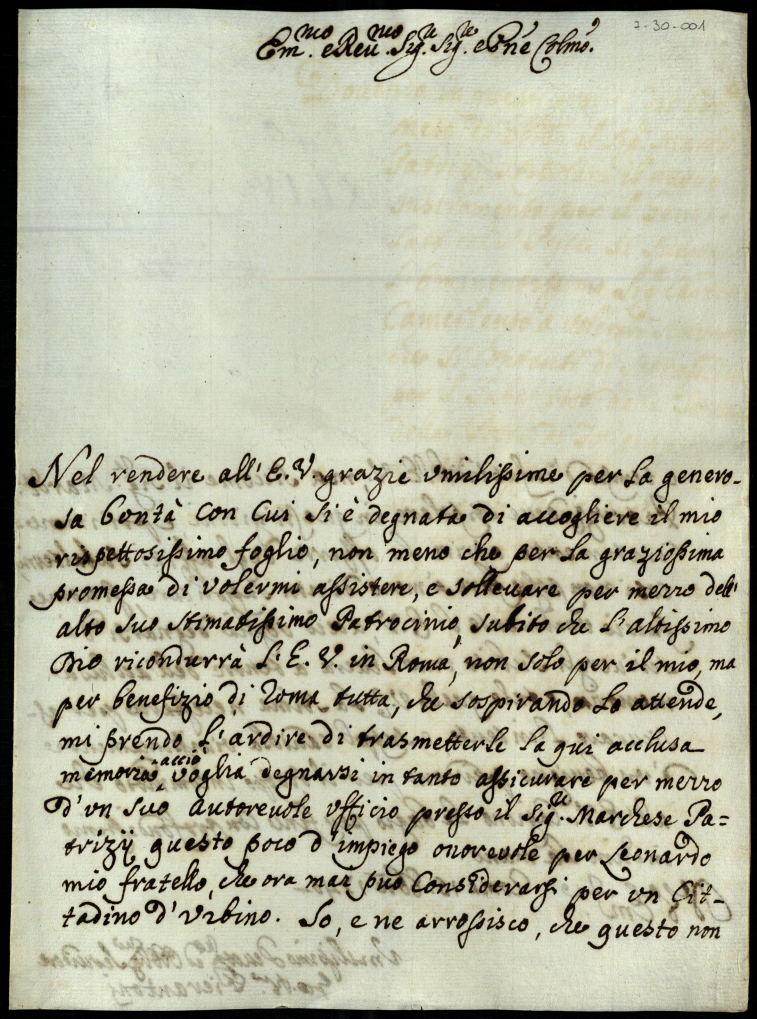 7-30-001
Em.mo e Reu.mo Sig.re Sig.re e Pñe Colmo.
Nel rendere all' E.V. grazie vmilissime per la genero-
sa bontà con cui si è degnata di accogliere il mio
rispettosissimo foglio, non meno che per la graziosissima
promessa di volermi assistere, e sollevare per mezzo dell'
alto suo stimatissimo Patrocinio, subito che l'altissimo
Dio ricondurrà l'E.V. in Roma, non solo per il mio, ma
per benefizio di Roma tutta, che sospirando lo attende,
mi prendo l'ardire di trasmetterle la qui acclusa
memoria acciò voglia degnarsi in tanto assicurare per mezzo
d'vn suo autorevole vfficio presso il Sig.re Marchese Pa=
trizij questo poco d'impiego onorevole per Leonardo
mio fratello, che ora mai può considerarsi per vn Cit-
tadino d'Vrbino. So, e ne arrossisco, che questo non